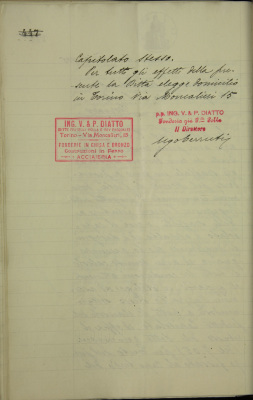 447
Capitolato stesso.
Per tutti gli effetti della pre-
sente la Ditta elegge domicilio
in Torino Via Moncalieri 15
ING. V. & P. DIATTO
Torino - Via Moncalieri, 15
FONDERIE IN GHISA E BRONZO
Costruzioni in Ferro
ACCIAIERIA
p.p. ING. V. & P. DIATTO
Il Direttore